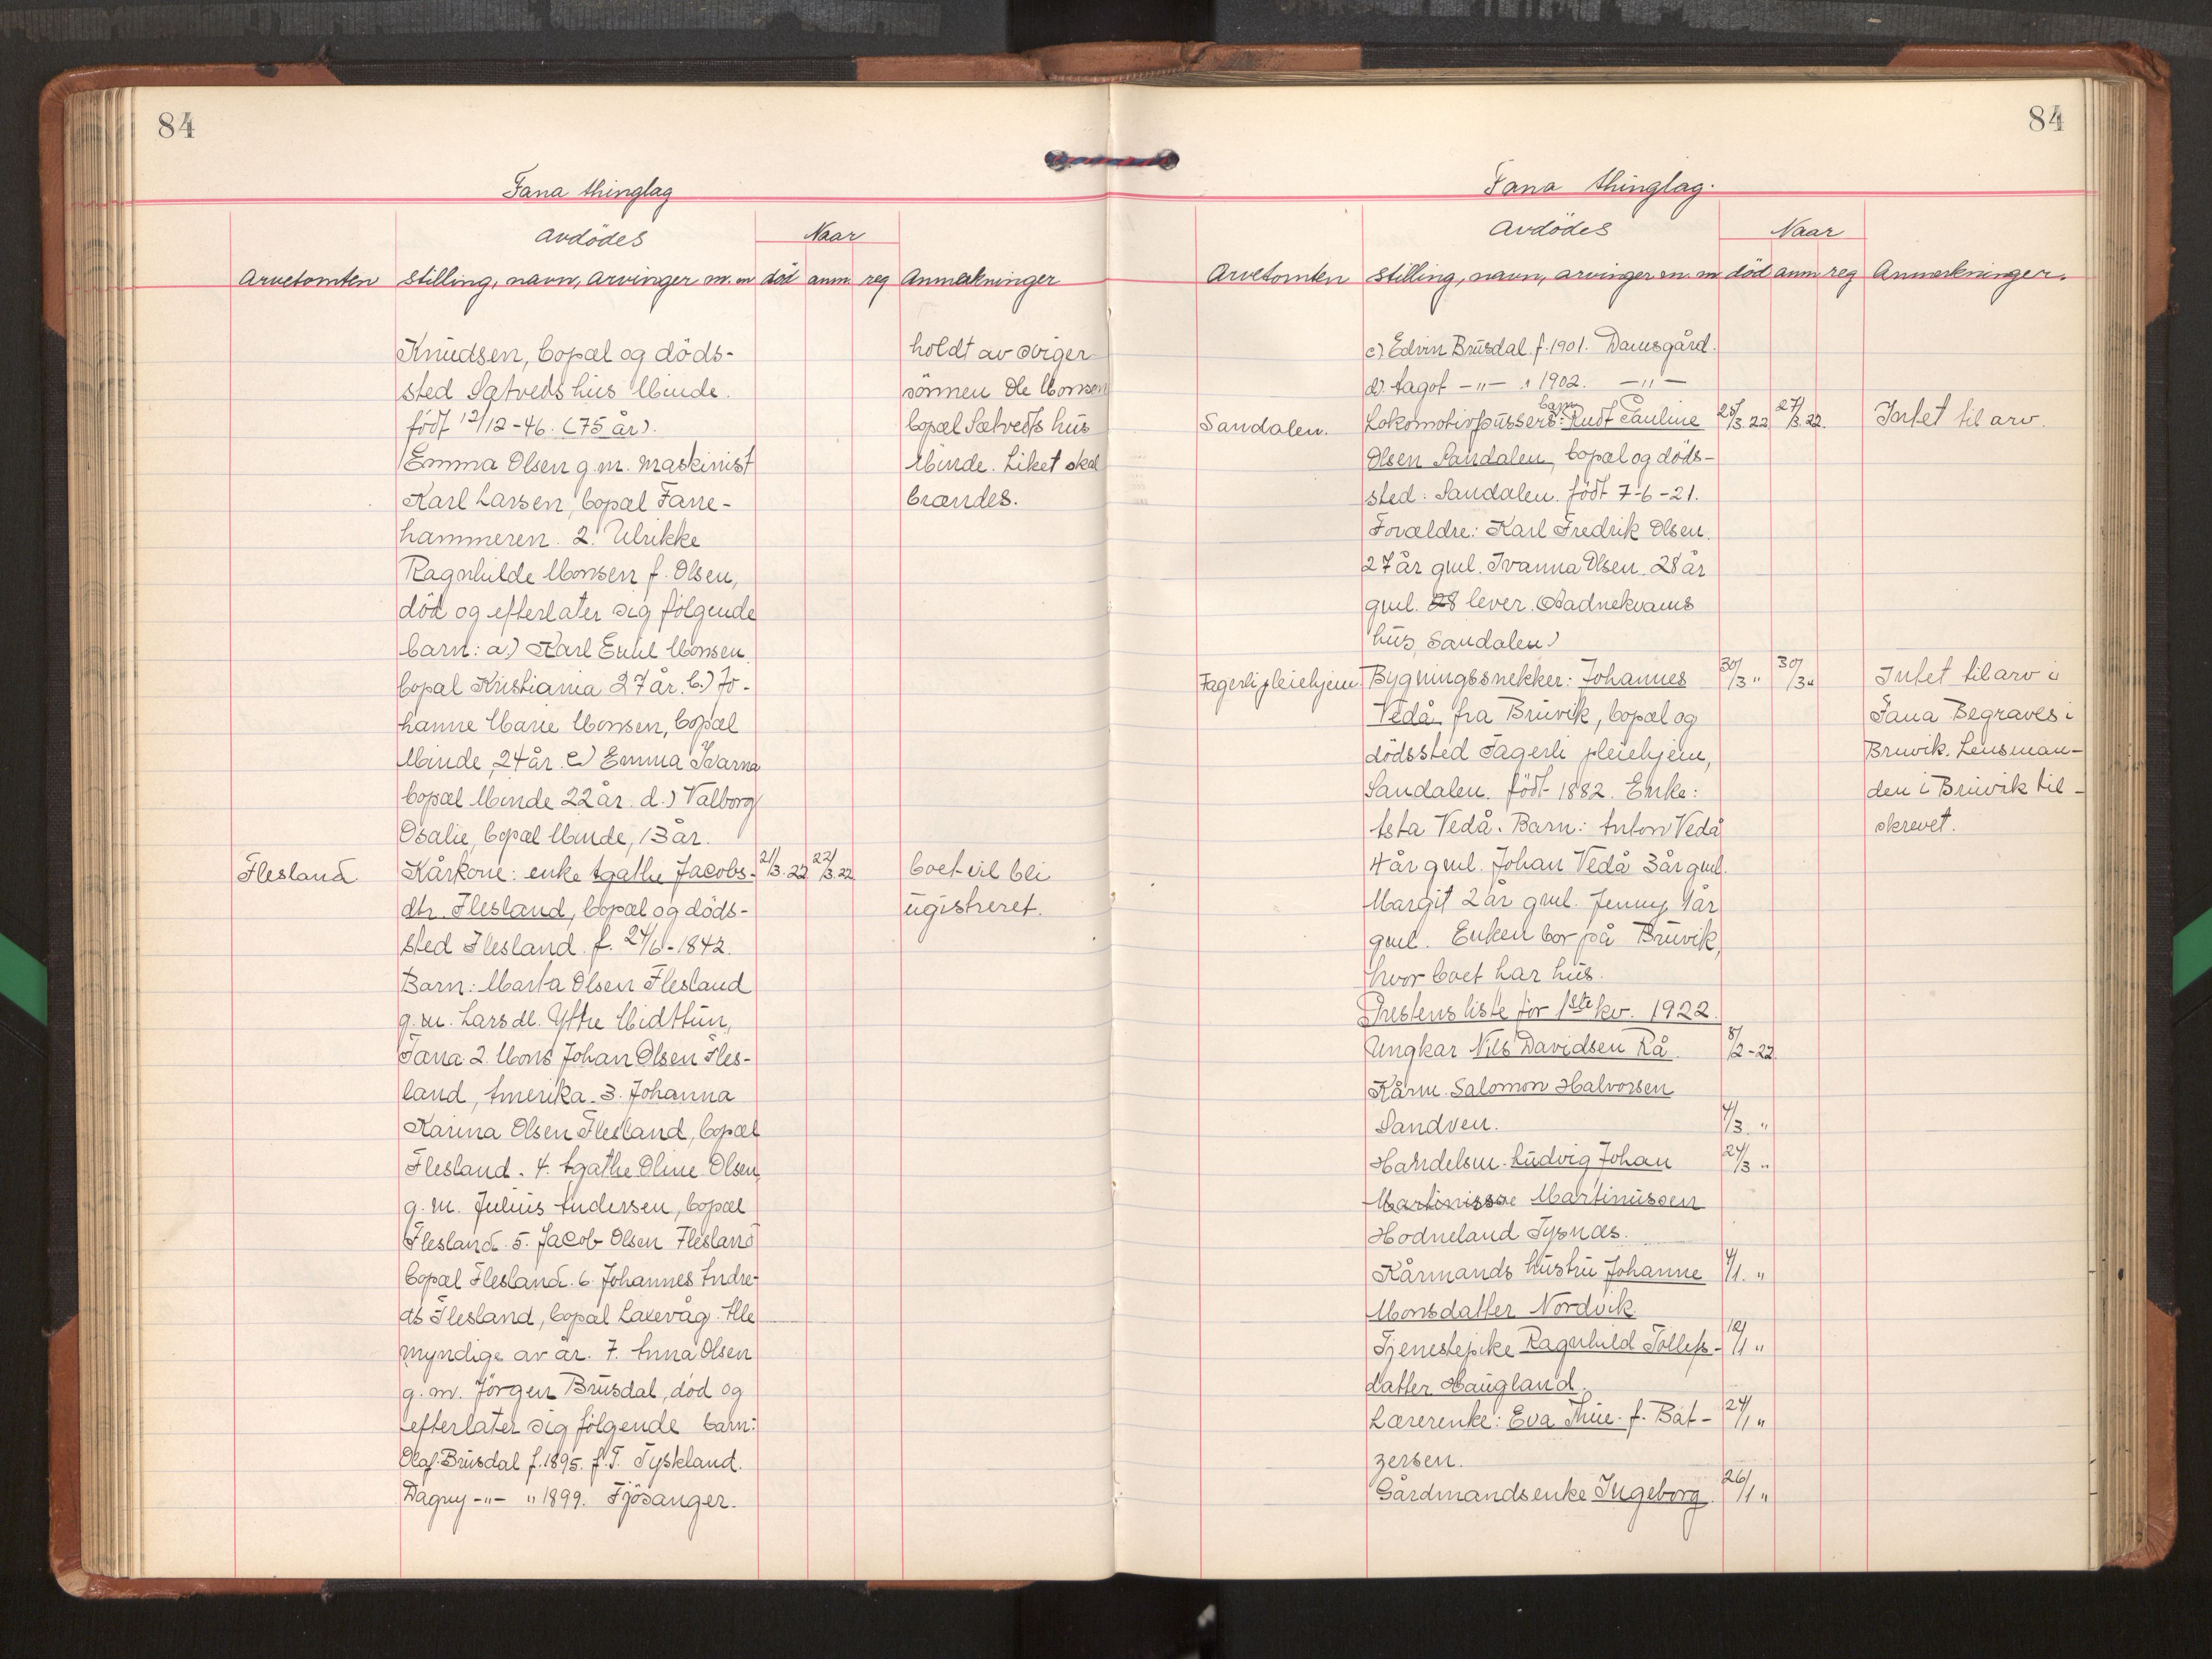 84
Fana thinglag
Avdödes
Naar
Arvetomten stilling, navn, arvinger m. m död anm. reg Anmerkninger
Knudsen, bopæl og döds-
holdt av sviger
sted Sætvedts hus Minde.
sönnen Ole Monsen
födt 12/12-46. (75 år).
bopæl Sætvedts hus
Emma Olsen g.m. maskinist
Minde. Liket skal
Karl Larsen, bopæl Fane-
brændes.
hammeren. 2. Ulrikke
Ragnhilde Monsen f. Olsen,
död og efterlater sig följende
barn: a.) Karl Emil Monsen
bopæl Kristiania 27 år. b.) Jo-
hanne Marie Monsen, bopæl
Minde, 24 år. c) Emma Ivarna
bopæl Minde 22 år. d.) Valborg
Osalie, bopæl Minde, 13 år.
Flesland. Kårkone: enke Agathe Jacobs- 21/3.22 22/3.22 boet vil bli
dtr. Flesland, bopæl og döds-
registreret.
sted Flesland. f. 24/6-1842.
Barn: Marta Olsen Flesland
g.m. Lars dl. Yttre Midttun,
Fana. 2. Mons Johan Olsen Fles-
land, Amerika. 3. Johanna
Karina Olsen Flesland, bopæl
Flesland. 4. Agathe Oline Olsen
g.m. Julius Andersen, bopæl
Flesland. 5. Jacob Olsen Flesland
bopæl Flesland. 6. Johannes Andre-
as Flesland, bopæl Laxevåg. Alle
myndige av år. 7. Anna Olsen
g.m. Jörgen Brusdal, död og
efterlater sig følgende barn:
Olaf Brusdal f. 1895. f.T. Tyskland.
Dagny -"- " 1899. Fjösanger.
84
Fana thinglag.
Avdödes
Naar
Arvetomten stilling, navn, arvinger m. m död anm reg Anmerkninger.
c) Edvin Brusdal. f. 1901. Damsgård.
d) Aagot -"- " 1902. -"-
Sandalen. Lokomotivpussers barn: Rudt Pauline 25/3.22 27/3.22. Intet til arv.
Olsen Sandalen, bopæl og döds-
sted: Sandalen. födt 7-6-21.
Forældre: Karl Fredrik Olsen.
27 år gml. Ivanna Olsen. 28 år
gml. 28 lever. (Aadnekvams
hus, Sandalen)
Fagerli pleiehjem Bygningssnekker: Johannes 30/3 " 30/3 " Intet til arv i
Vedå fra Bruvik, bopæl og
Fana Begraves i
dödssted Fagerli pleiehjem,
Bruvik. Lensman-
Sandalen. födt 1882. Enke:
den i Bruvik til-
Asta Vedå. Barn: Anton Vedå
skrevet.
4 år gml. Johan Vedå 3 år gml.
Margit 2 år gml. Jenny 1 år
gml. Enken bor på Bruvik,
hvor boet har hus.
Prestens liste for 1ste kv. 1922.
Ungkar Nils Davidsen Rå. 8/2-22.
Kårm. Salomon Halvorsen
Sandven. 4/3. "
Handelsm. Ludvig Johan 24/3 "
Martinisse Martinussen
Hodneland Tysnæs.
Kårmands hustru Johanne 4/1. "
Monsdatter Nordvik
Tjenestepike Ragnhild Tollefs- 12/1 "
datter Haugland.
Lærerenke: Eva Thue. f. Bat- 24/1 "
zersen.
Gårdmandsenke Ingeborg 26/1 "